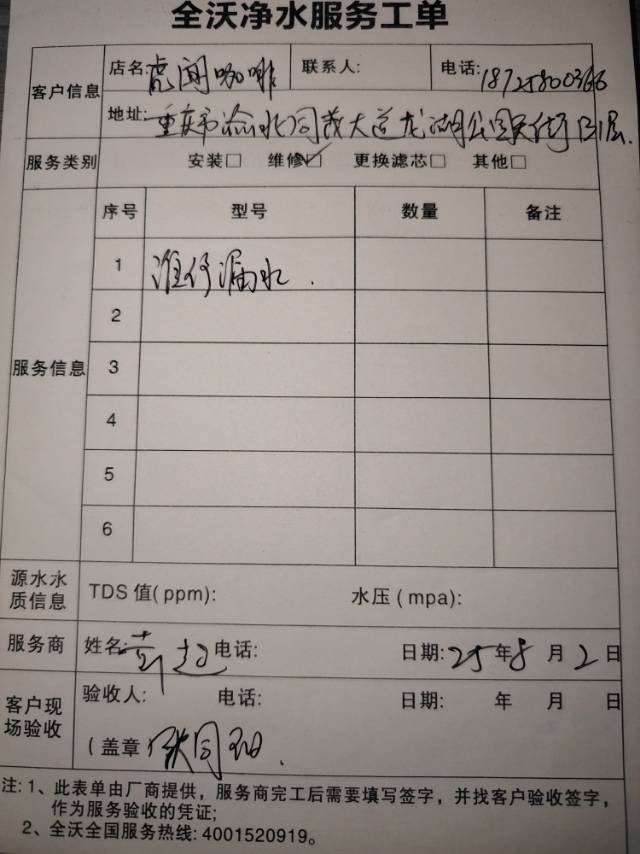 全沃净水服务工单
客户信息
店名: 鹿闻咖啡 联系人: 电话: 18725800366
地址: 重庆市渝北同茂大道龙湖公园天街B1层.
服务类别 安装□ 维修☑ 更换滤芯□ 其他□
服务信息
序号 型号 数量 备注
1 维修漏水.
2
3
4
5
6
源水水质信息 TDS 值(ppm): 水压(mpa):
服务商 姓名: 电话: 日期: 25年8月2日
客户现场验收
验收人: 电话: 日期: 年 月 日
(盖章
注: 1、此表单由厂商提供，服务商完工后需要填写签字，并找客户验收签字，
作为服务验收的凭证;
2、全沃全国服务热线: 4001520919。